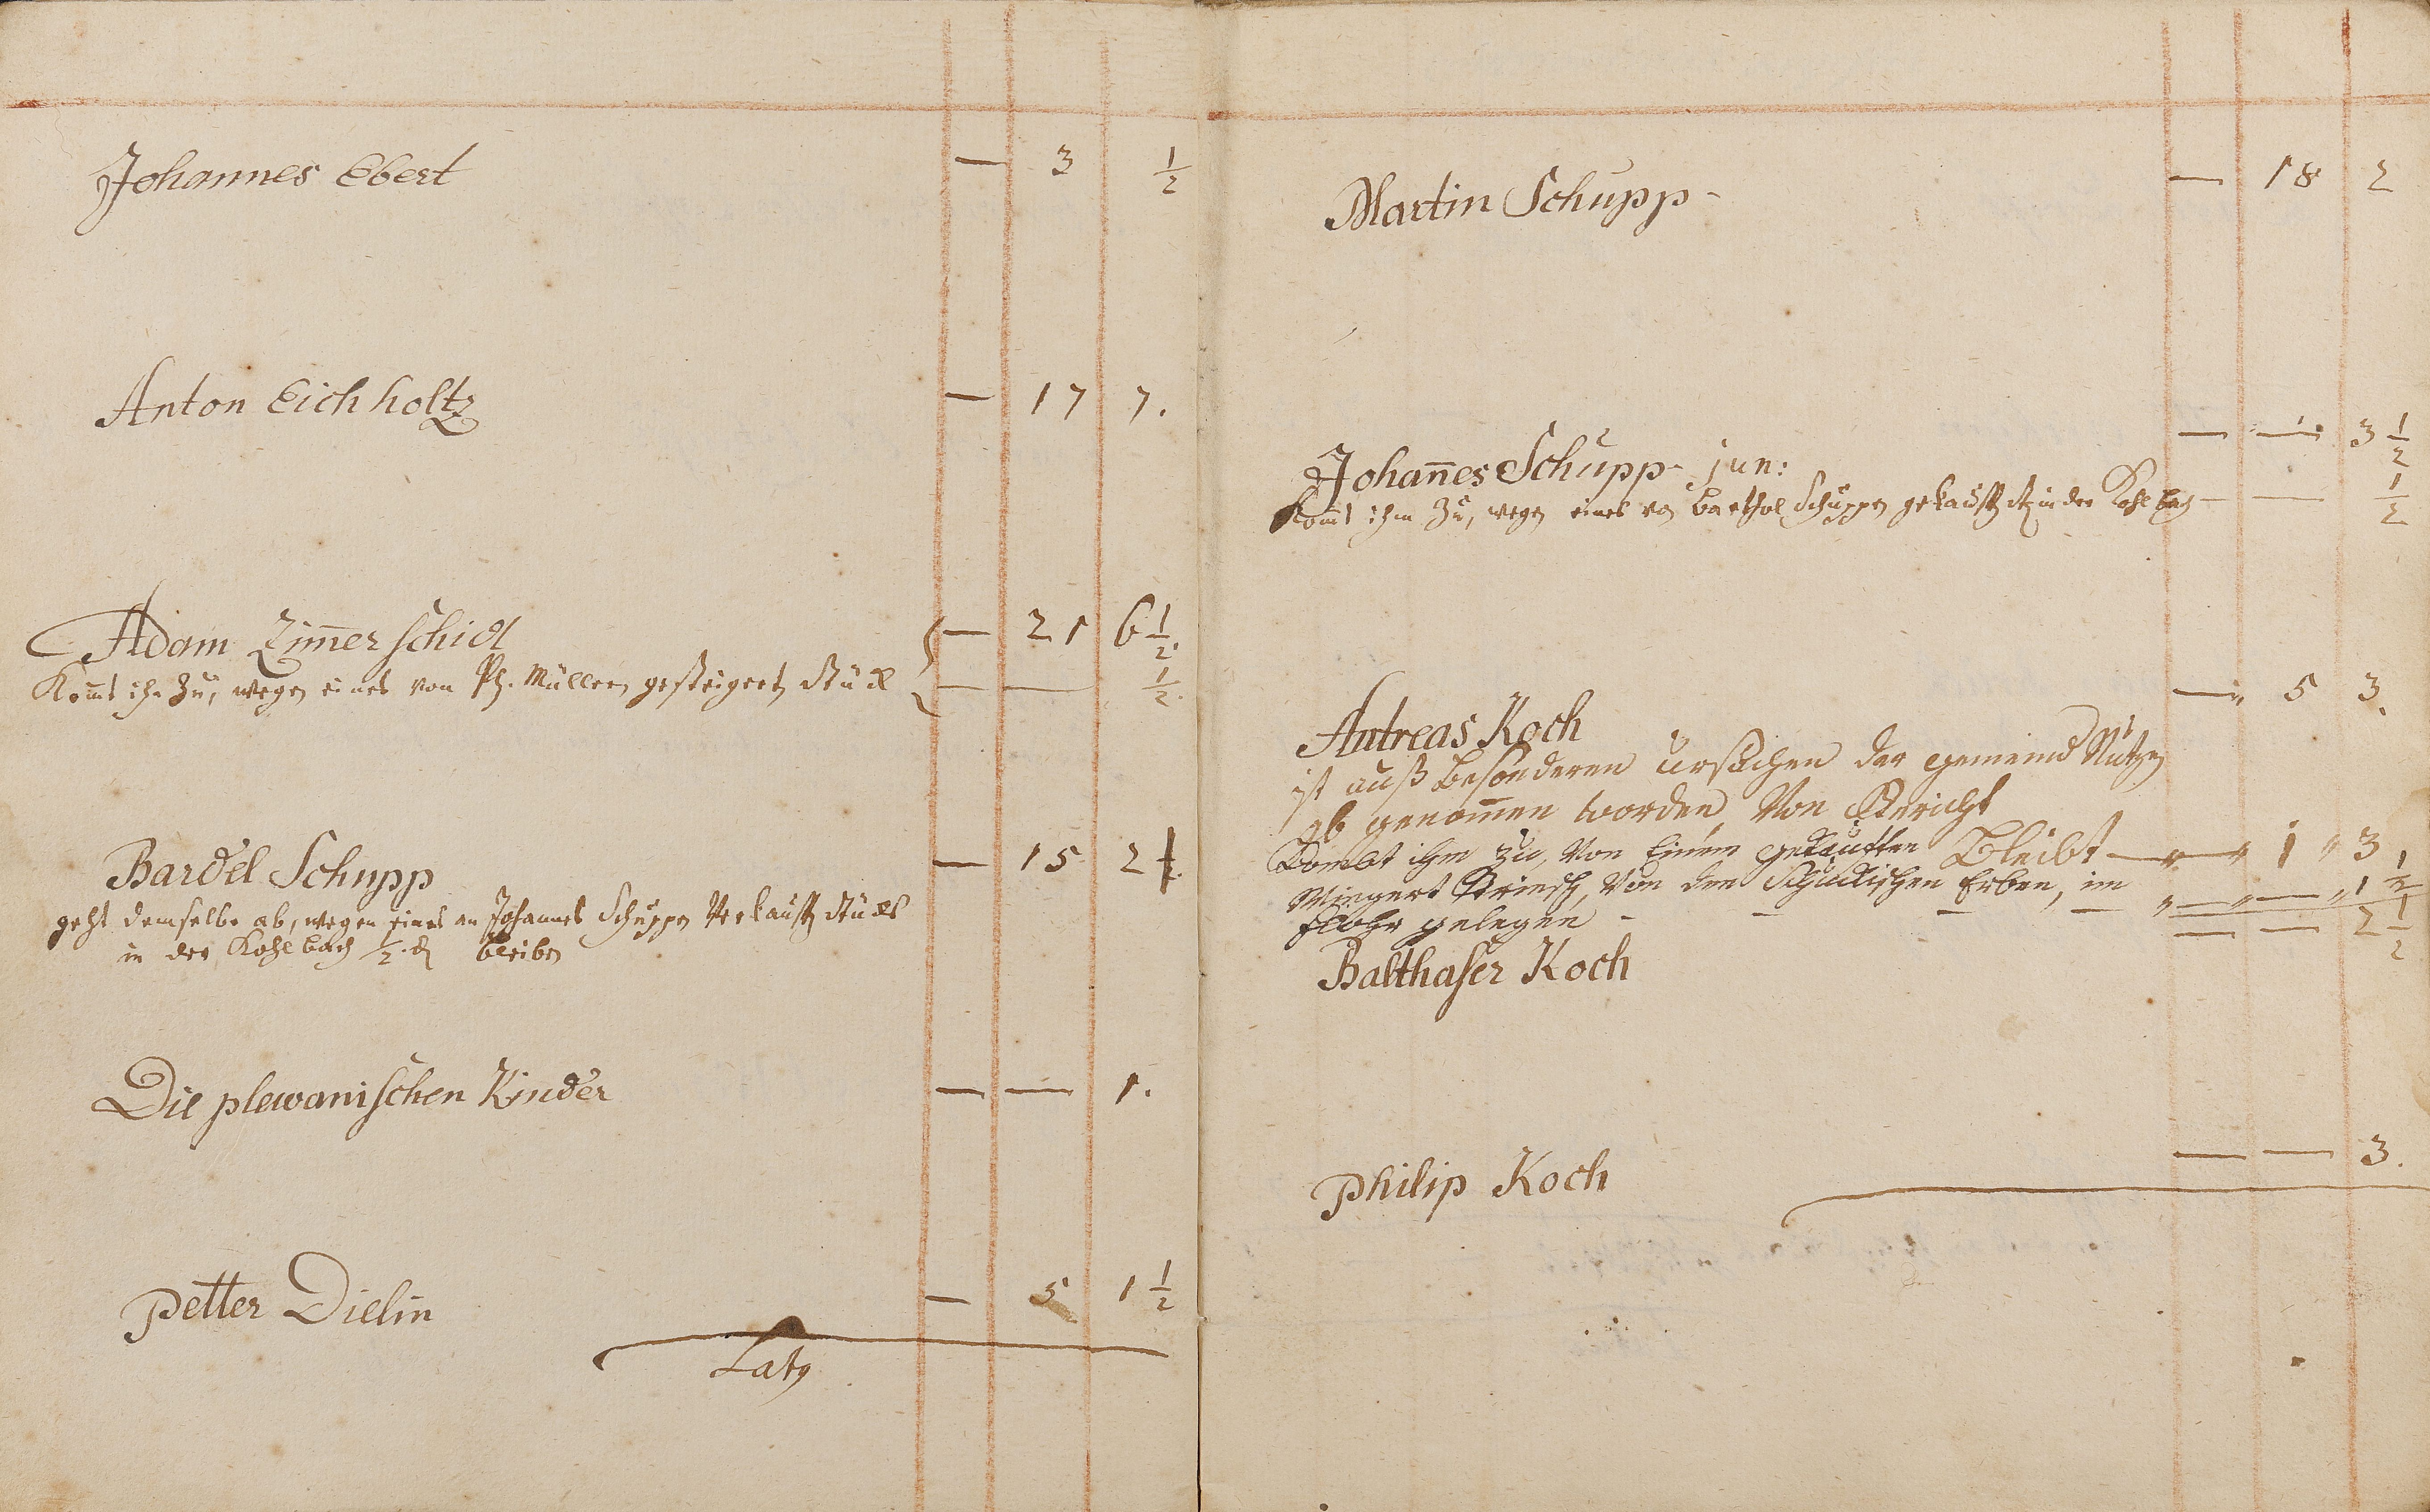 Johannes Ebert — 3 ½
Anton Eichholtz — 17 7.
Adam Zim̄erschid — 21 6 ½.
Kom̄t ihm zu, wegen eines von Ph. Müllern gesteigert Stück — — ½.
Bardel Schupp — 15 2
geht demselbe ab, wegen eines an Johannes Schuppen verkaufft Stücks
in der Kohlbach ½ d bleiben
Die plewanischen Kinder — — 1.
Petter Dielin — 5 1 ½
Lats
Martin Schupp — 18 2
Johan̄es Schupp jun: — — 3 ½
Kom̄t ihm zu, wegen eines von Barthol Schuppen gekaufft in der Kohlbach — — ½
Antreas Koch — 5 3.
ist auß besonderen ursachen der gemeind Nutzen
ab genom̄en worden von Gericht
Bleibt — 1 3 ½
Kombt ihm zu, von Einem gekaufften
Wingert, von den Schuckischen Erben, im
Flohr gelegen — — — — 1
Balthaser Koch — — 2 ½
Philip Koch — — 3.